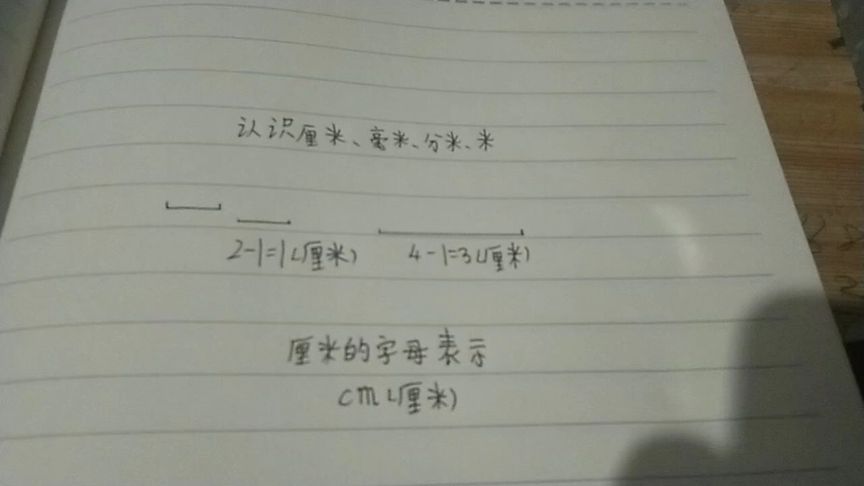 认识厘米、毫米、分米、米
2-1=1(厘米)
4-1=3(厘米)
厘米的字母表示
cm(厘米)